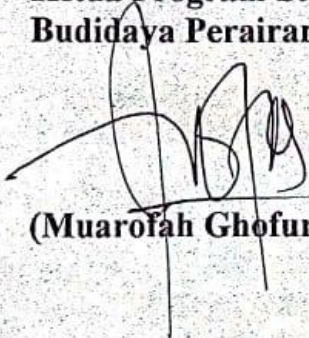 Budidaya Perairan
(Muarofah Ghofur